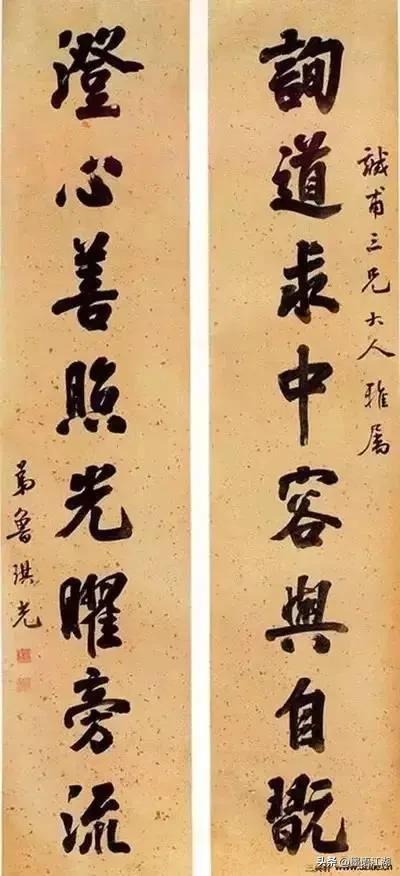 誠甫三兄大人雅屬
詢道求中容與自翫
澄心善照光曜旁流
弟魯琪光